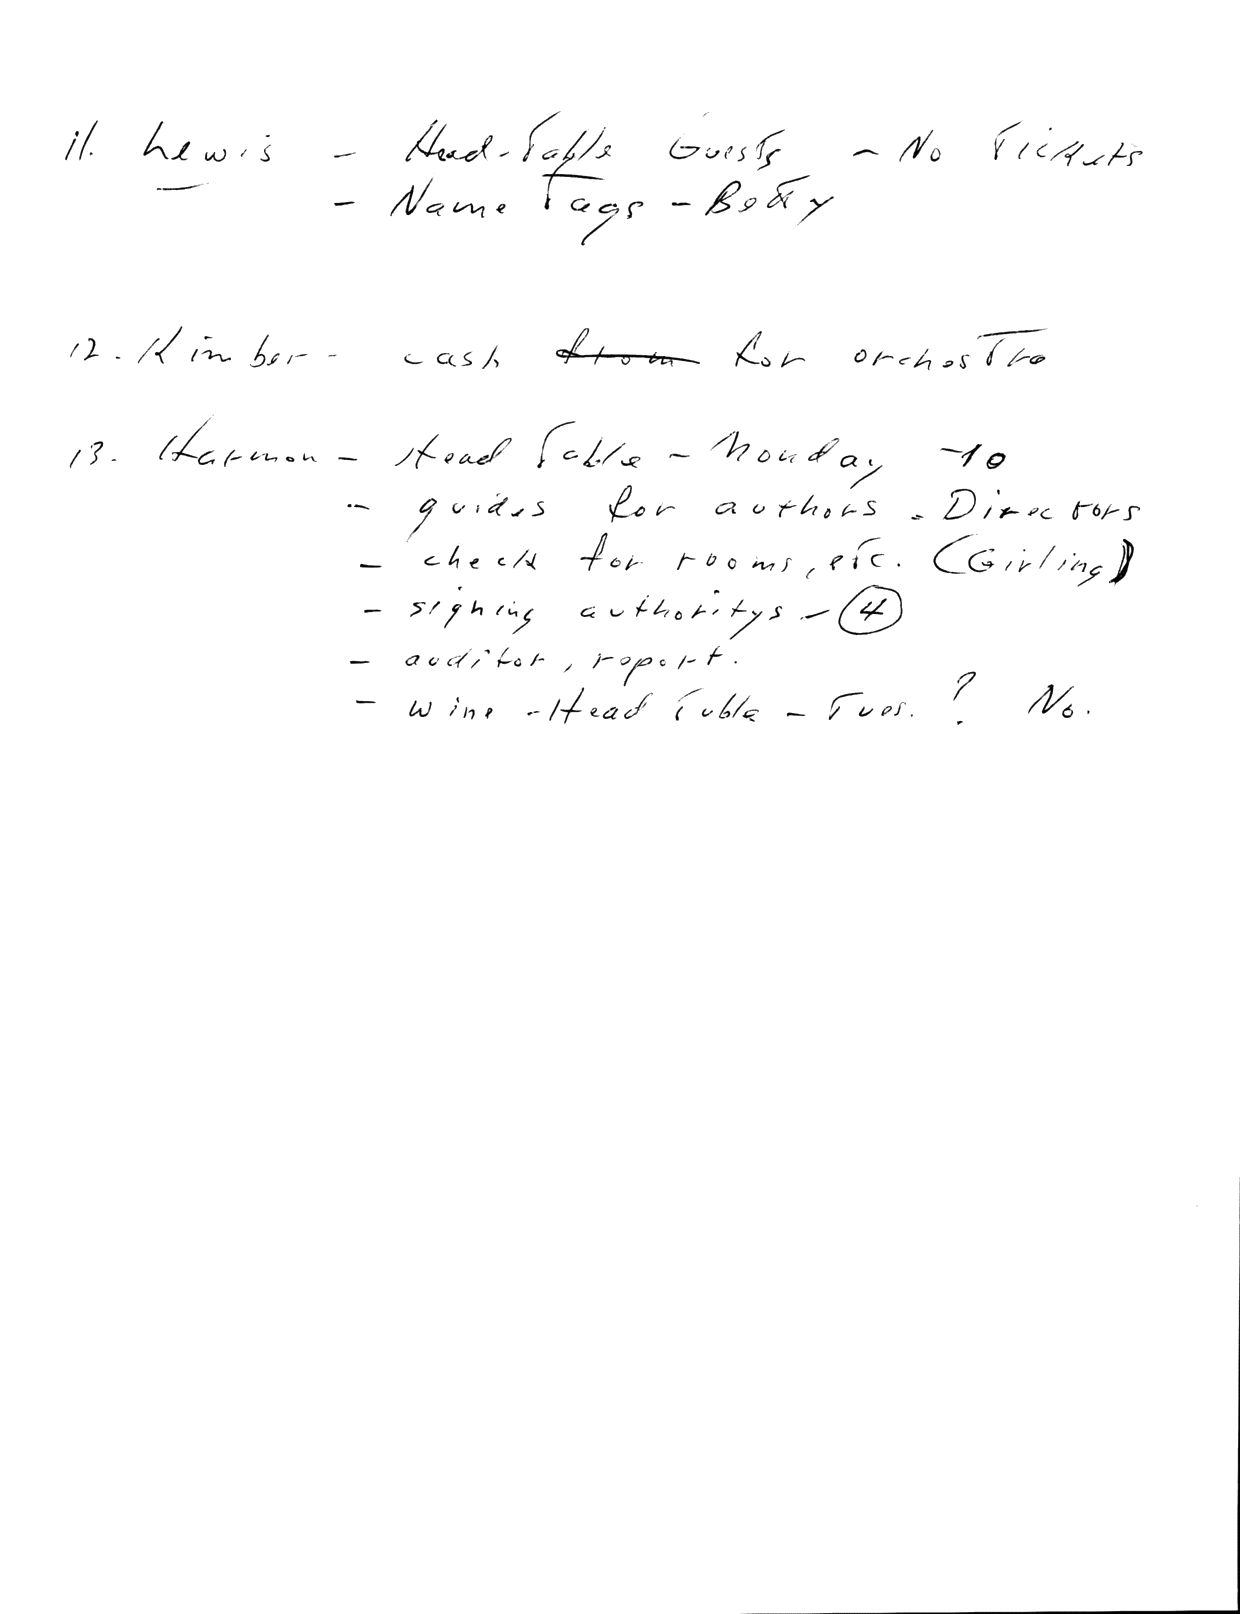 11. Lewis - Head-Table Guests - No Tickets
- Name Tags - Betty
12. Kimber - cash from for orchestra
13. Harmon - Head Table - Monday -10
- guides for authors - Directors
- check for rooms, etc. (Girling)
- signing authoritys - 4
- auditor, report.
- wine - Head Table - Tues. ? No.